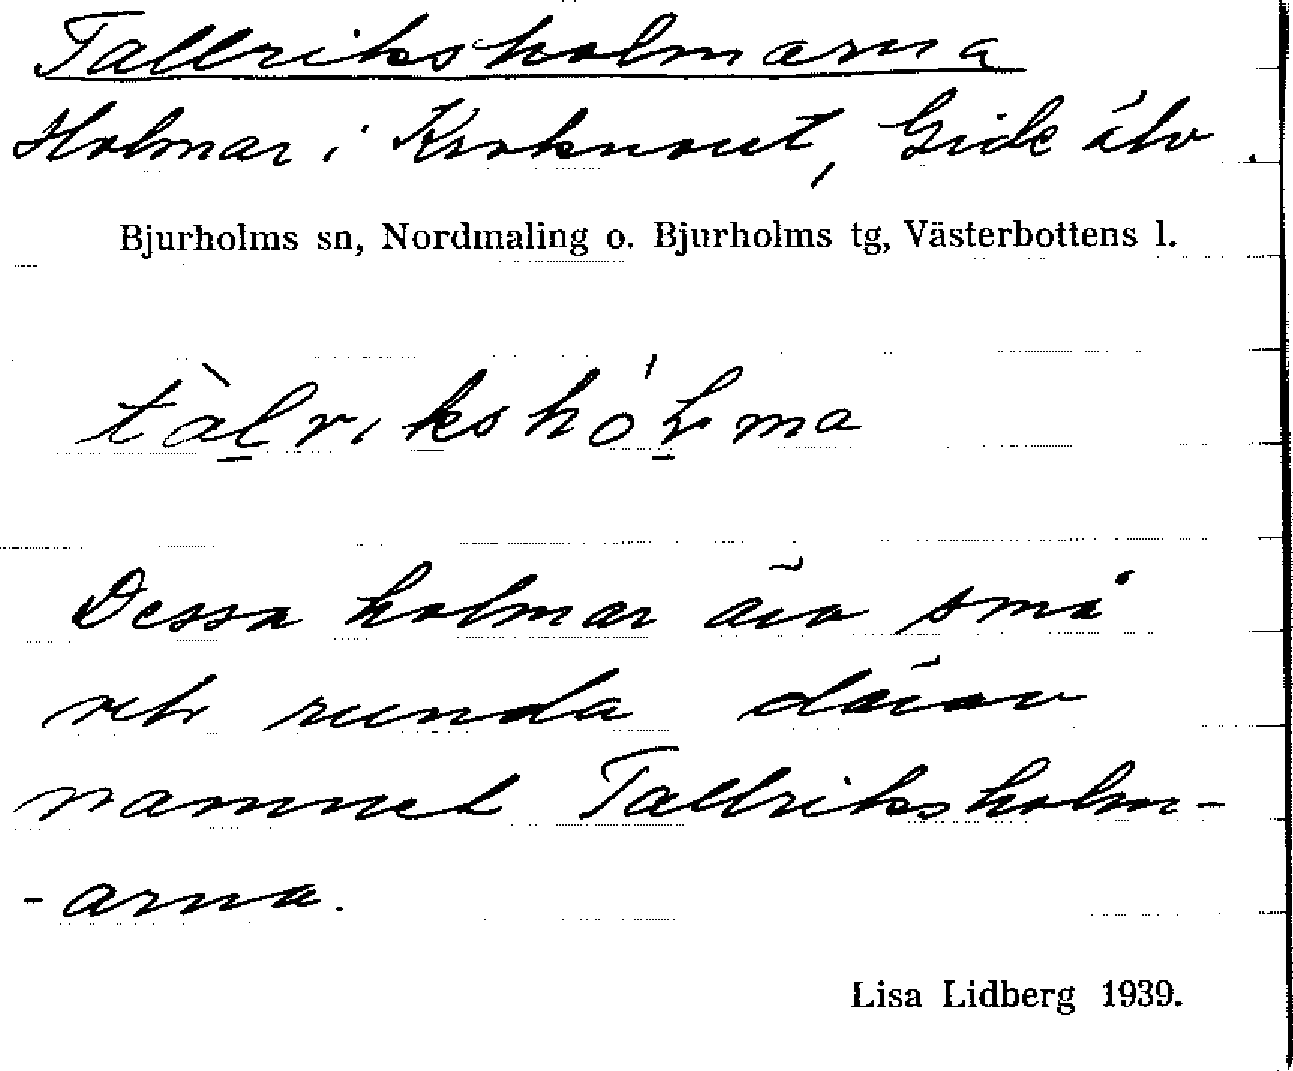 Tallriksholmarna
Holmar i Kroknout, Gide älv.
Bjurholms sn, Nordmaling o. Bjurholms tg, Västerbottens l.
tàlrikshólma
Dessa holmar äro små
och runda därav
namnet Tallriksholm-
-arna.
Lisa Lidberg 1939.